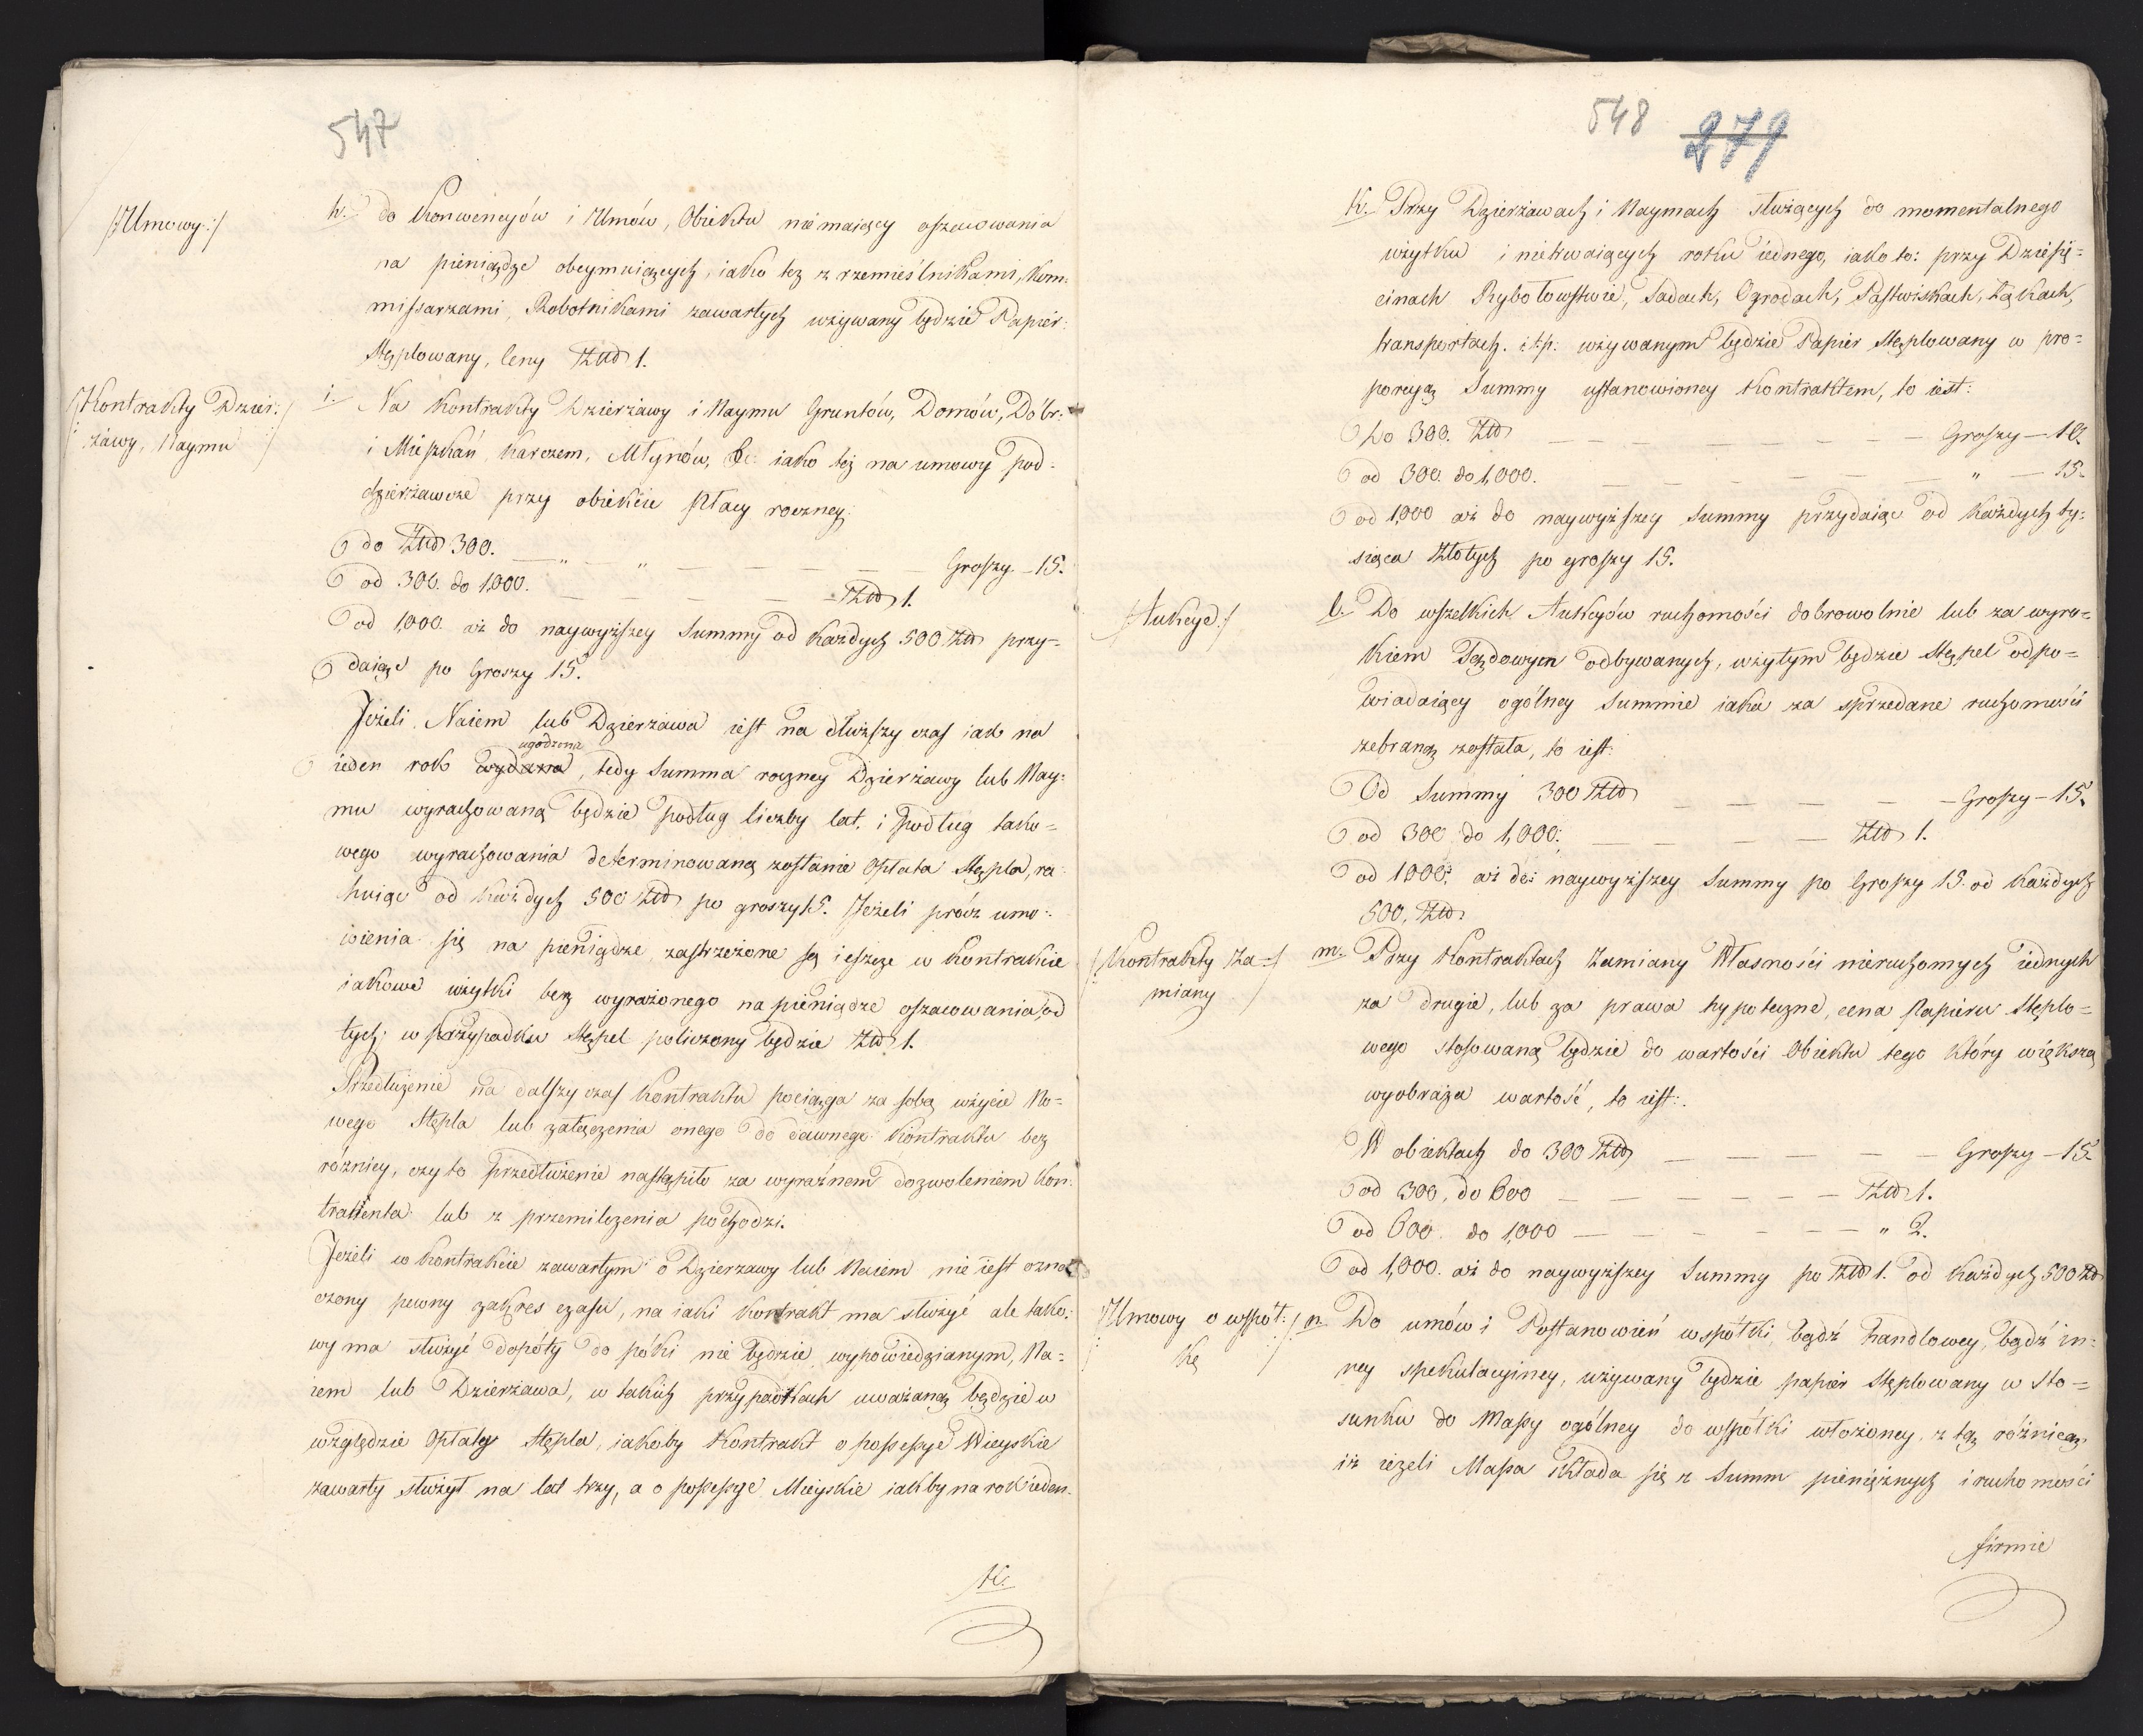 547
/:Umowy:/
h. do Konwencyów i Umów, Obiektu nie maiący oszacowania
na pieniądze obeymuiących, iako też z rzemieślnikami, Kom:
missarzami, Robotnikami zawartych używany będzie Papier
Stęplowany, Ceny Złtd 1.
/:Kontrakty Dzier:/
/:żawy, Naymu:/
i. Na Kontrakty Dzierżawy i Naymu Gruntów, Domów, Dóbr:
i Mieszkań, Karczem, Młynów, &c: iako też na umowy pod:
dzierżawcze przy obiekcie płacy roczney:
do Złtd 300. — „ — „ — — — — Groszy. 15.
od 300. do 1,000. — — — — — Złtd 1.
od 1,000. aż do naywyższey Summy od każdych 500. Złtd przy-
daiąc po Groszy 15.
Jeżeli Naiem lub Dzierżawa iest na dłuższy czas iak na
ugodzona
ieden rok wydana, tedy Summa roczney Dzierżawy lub Nay:
mu wyrachowaną będzie podług liczby lat, i podług tako=
wego wyrachowania determinowaną zostanie Opłata Stępla, ra
huiąc od każdych 500 Złtd po groszy 15. Jeżeli prócz umó:
wienia się na pieniądze zastrzeżone są ieszcze w Kontrakcie
iakowe użytki bez wyrażonego na pieniądze oszacowania, od
tych w przypadku Stępel policzony będzie Złtd 1.
Przedłużenie na dalszy czas Kontraktu pociąga za sobą użycie No=
wego Stępla lub załączenia onego do dawnego Kontraktu bez
różnicy, czy to przedłużenie nastąpiło za wyraźnem dozwoleniem Kon:
trahenta lub z przemilczenia pochodzi.
Jeżeli w Kontrakcie zawartym o Dzierzawy lub Naiem nie iest ozna
czony pewny zakres czasu, na iaki Kontrakt ma służyć ale tako:
wy ma służyć dopóty do póki nie będzie wypowiedzianym, Na=
iem lub Dzierżawa, w takich przypadkach uważaną będzie w
względzie Opłaty Stępla, iakoby Kontrakt o possessye Wieyskie
zawarty służył na lat trzy, a o possessye Mieyskie iakby na rok ieden.
K.
548 279
K. Przy Dzierżawach i Naymach służących do momentalnego
użytku i nietrwaiących roku iednego, iako to: przy Dziesię=
cinach Rybołowstwie, Sadach, Ogrodach, Pastwiskach, Łąkach,
transportach. i t.p: używanym będzie Papier Stęplowany w pro=
porcyą Summy ustanowioney Kontraktem, to iest:
do 300. Złtd — — — — — — Groszy — 10.
od 300. do 1,000. — — — — — — „ — 15.
od 1,000 aż do naywyższey Summy przydaiąc od każdych ty:
siąca Złotych po groszy 15.
/:Aukcye:/
l. Do wszelkich Aukcyów ruchomości dobrowolnie lub za wyro=
kiem Sądowym odbywanych, użytym będzie Stępel odpo=
wiadaiący ogólney Summie iaka za sprzedane ruchomości
zebraną została, to iest:
Od Summy 300 Złtd — — — — — Groszy — 15.
od 300 do 1,000: — — — — Złtd 1.
od 1000: aż do: naywyższey Summy po Groszy 15. od każdych
500. Złtd.
/:Kontrakty Za=:/
miany
m. Przy Kontraktach Zamiany Własności nieruchomych iednych
za drugie, lub za prawa hypoteczne, cena Papieru Stęplo=
wego stosowaną będzie do wartości Obiektu tego który większą
wyobraża wartość, to iest:
W obiektach do 300 Złtd — — — — — Groszy — 15.
od 300. do 600 — — — — — — Złtd 1.
od 600. do 1,000 — — — — — — „ 2.
od 1,000. aż do naywyższey Summy po Złtd 1. od każdych 500 Złtd
/:Umowy o wspól:/
kę
n. Do umów i Postanowień wspólki, bądź handlowey, bądź in:
ney spekulacyiney, używany będzie papier Stęplowany w Sto=
sunku do Massy ogólney do wspólki włożoney, z tą różnicą
iż ieżeli Massa składa się z Summ pieniężnych i ruchomości
firmie